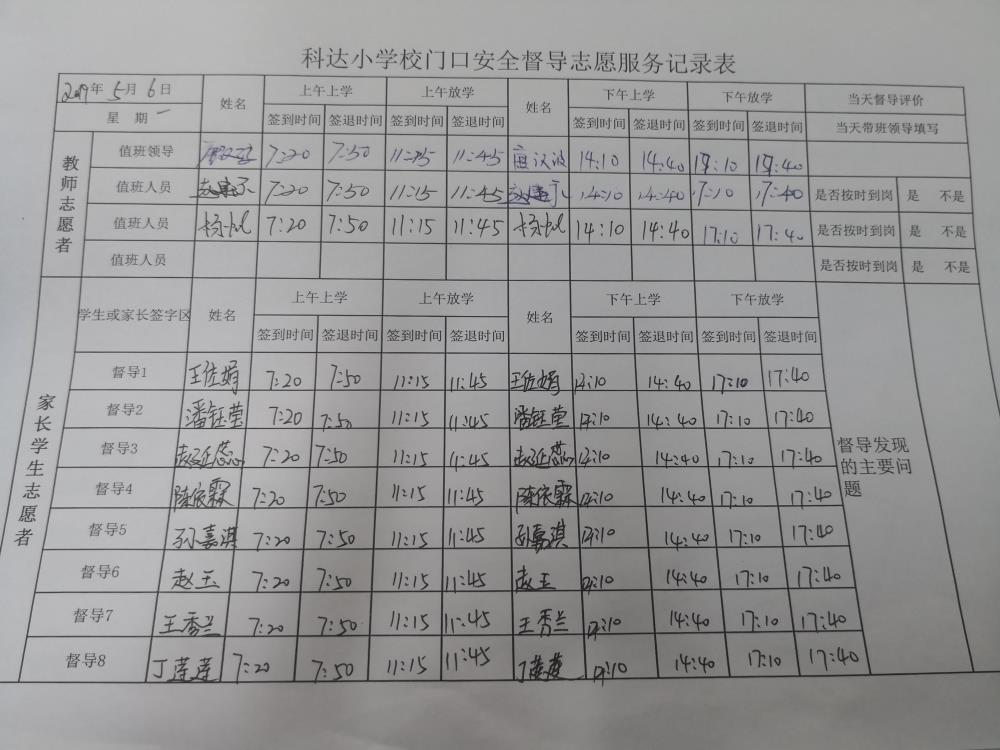 科达小学校门口安全督导志愿服务记录表
2019年5月6日 姓名 上午上学 上午放学 姓名 下午上学 下午放学 当天督导评价
星期一 签到时间 签退时间 签到时间 签退时间 签到时间 签退时间 签到时间 签退时间 当天带班领导填写
教师志愿者
值班领导 7:20 7:50 11:15 11:45 14:10 14:40 17:10 17:40
值班人员 7:20 7:50 11:15 11:45 14:10 14:40 17:10 17:40 是否按时到岗 是 不是
值班人员 7:20 7:50 11:15 11:45 14:10 14:40 17:10 17:40 是否按时到岗 是 不是
值班人员 是否按时到岗 是 不是
家长学生志愿者
学生或家长签字区 姓名 上午上学 上午放学 姓名 下午上学 下午放学
签到时间 签退时间 签到时间 签退时间 签到时间 签退时间 签到时间 签退时间
督导1 王佐娟 7:20 7:50 11:15 11:45 王佐娟 14:10 14:40 17:10 17:40
督导2 潘钰莹 7:20 7:50 11:15 11:45 潘钰莹 14:10 14:40 17:10 17:40
督导3 赵延蕊 7:20 7:50 11:15 11:45 赵延蕊 14:10 14:40 17:10 17:40
督导4 陈依霖 7:20 7:50 11:15 11:45 陈依霖 14:10 14:40 17:10 17:40
督导5 孙嘉淇 7:20 7:50 11:15 11:45 孙嘉淇 14:10 14:40 17:10 17:40
督导6 赵玉 7:20 7:50 11:15 11:45 赵玉 14:10 14:40 17:10 17:40
督导7 王秀兰 7:20 7:50 11:15 11:45 王秀兰 14:10 14:40 17:10 17:40
督导8 丁莲莲 7:20 7:50 11:15 11:45 丁莲莲 14:10 14:40 17:10 17:40
督导发现
的主要问
题